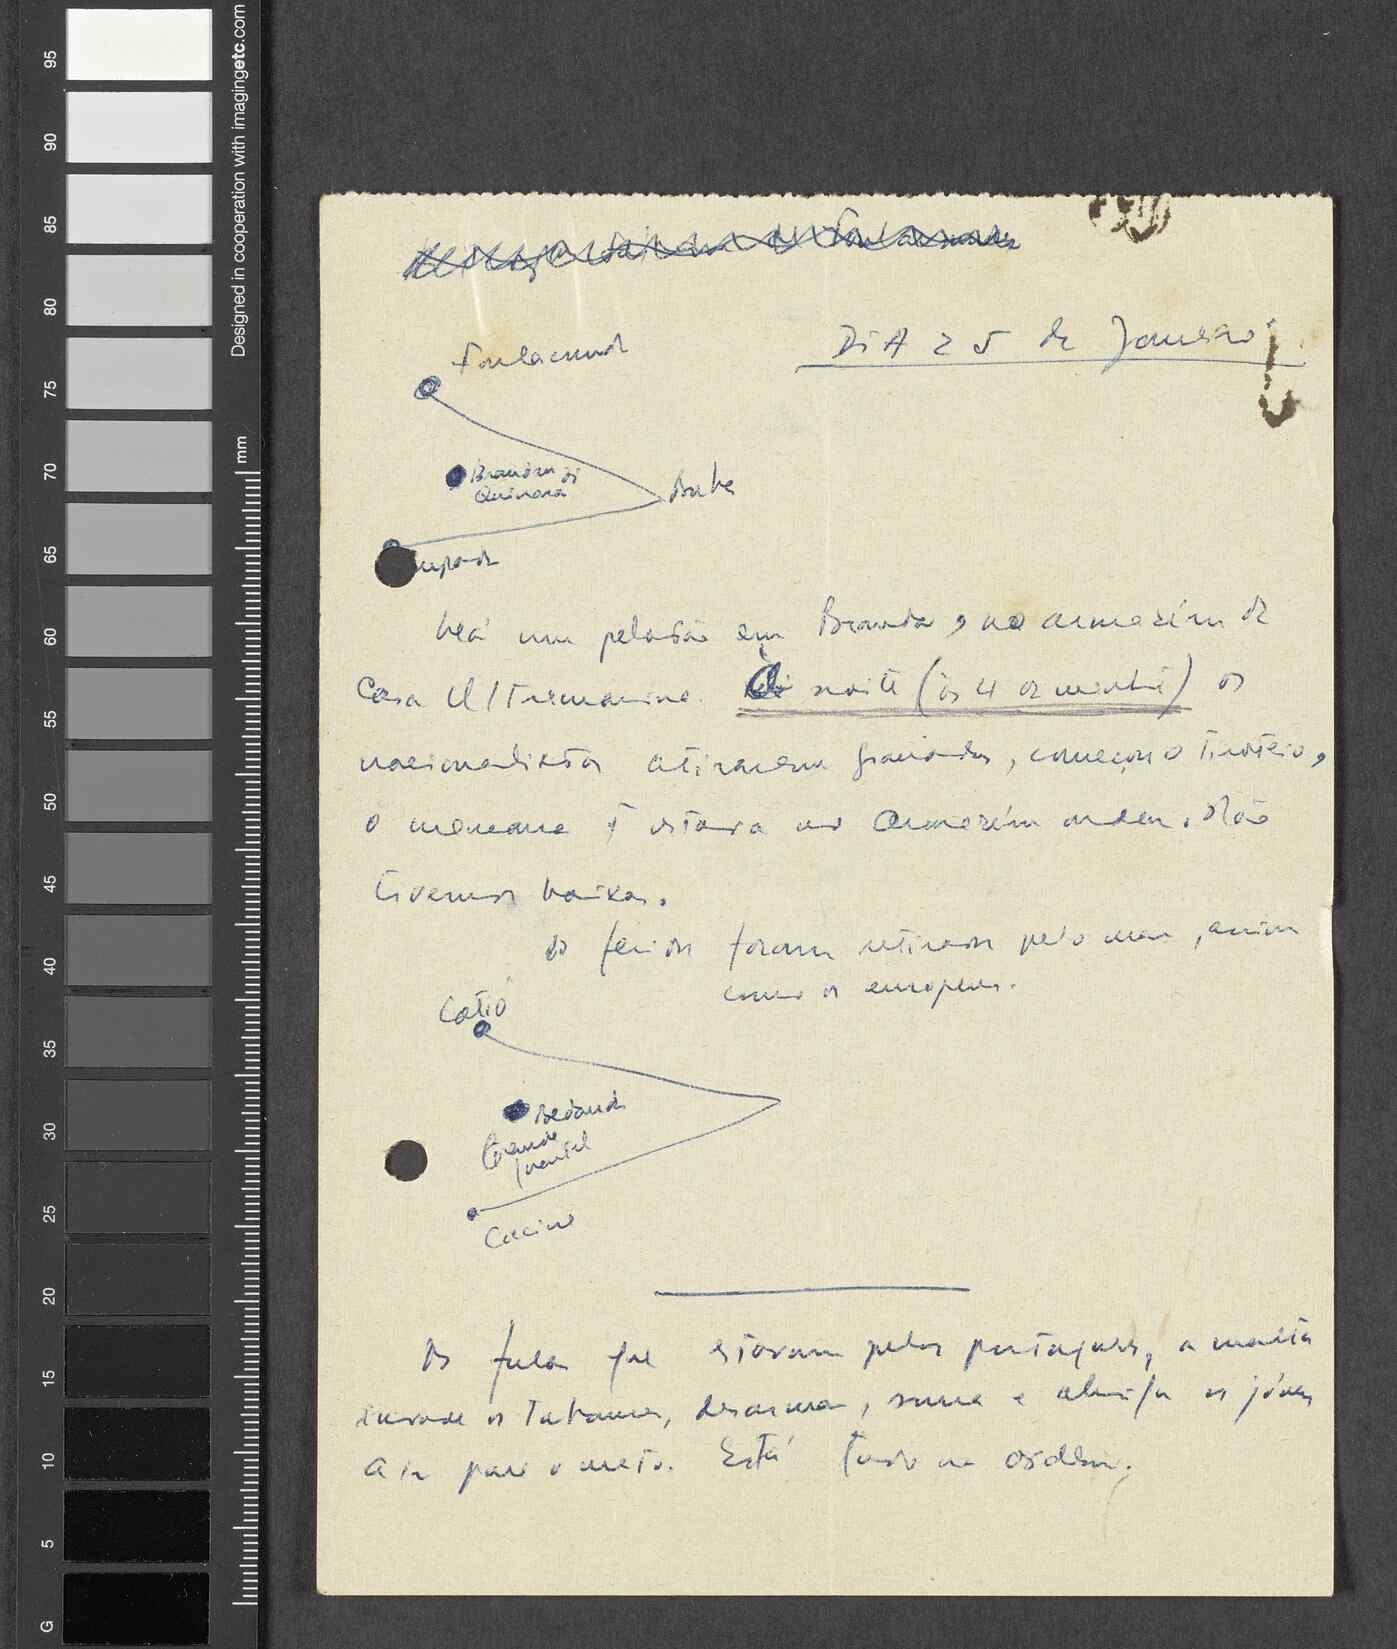 95
90
85
80
75
70
65
60
55
50
45
40
35
30
25
20
15
10
5
G
Designed in cooperation with imagingetc.com
mm
DiA 25 de Janeiro
Fulacunda
Brandão de
Quinara
Buba
Há um pelotão em Brandão, no armazém da
Casa Ultramarina. noite (às 4 da manhã) os
nacionalistas atiraram granadas, começou o tiroteio,
o estava no armazém ardeu. Não
tivemos baixas.
Os feridos foram retirados pelo mar, assim
como os europeus.
Catió
Bedanda
Grande
Cacine
Os fulas que estavam pelos portugueses, a malta
invade as Tabancas, desarma, e obriga os jóvens
a ir para o mato. Está tudo na ordem.